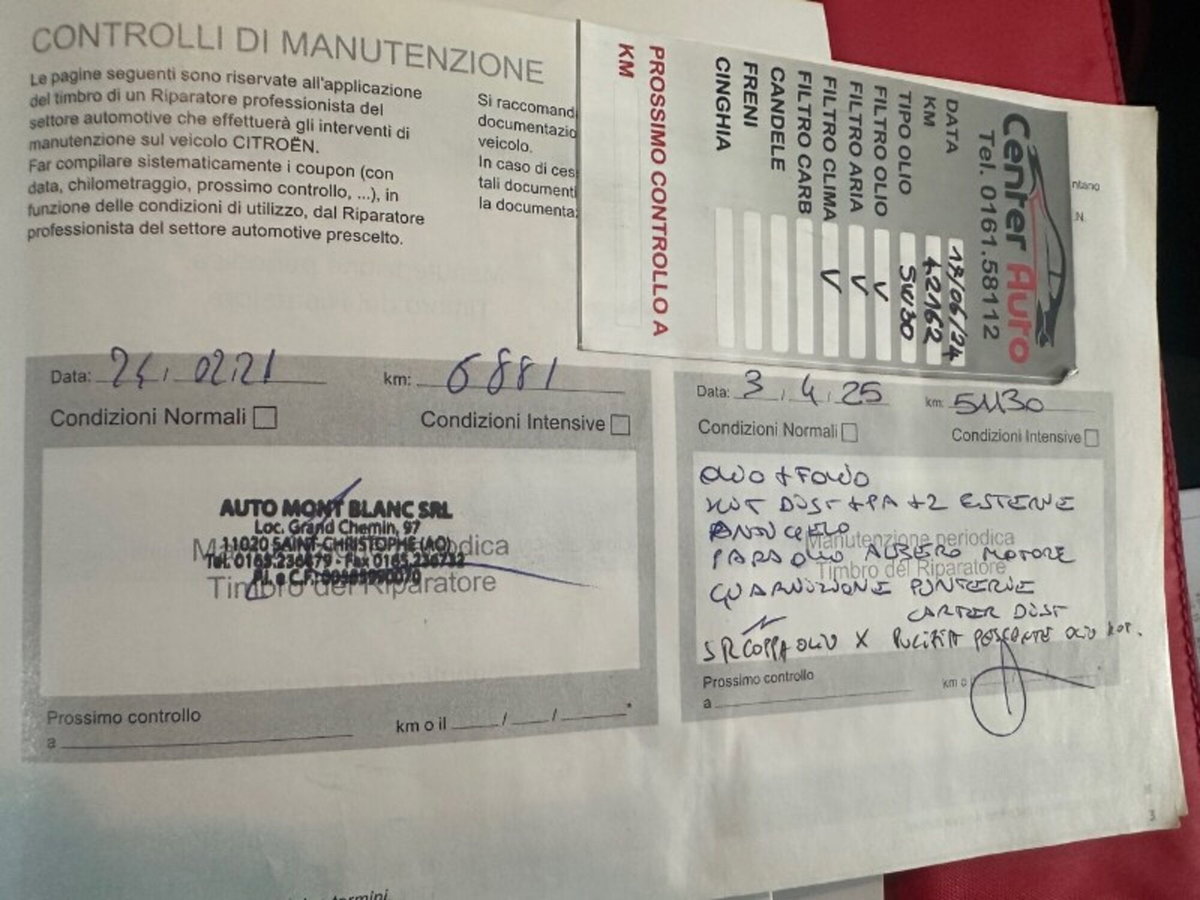 CONTROLLI DI MANUTENZIONE
Le pagine seguenti sono riservate all'applicazione
del timbro di un Riparatore professionista del
settore automotive che effettuerà gli interventi di
manutenzione sul veicolo CITROËN.
Far compilare sistematicamente i coupon (con
data, chilometraggio, prossimo controllo, ...), in
funzione delle condizioni di utilizzo, dal Riparatore
professionista del settore automotive prescelto.
Si raccomand
documentazio
veicolo.
In caso di ces
tali documenti
la documenta
ntano
N.
Center Auto
Tel. 0161.58112
DATA 19/06/24
KM 42162
TIPO OLIO 5W30
FILTRO OLIO V
FILTRO ARIA V
FILTRO CLIMA V
FILTRO CARB
CANDELE
FRENI
CINGHIA
PROSSIMO CONTROLLO A
KM
Data: 24, 02.21 km: 6881
Condizioni Normali Condizioni Intensive
AUTO MONT BLANC SRL
Loc. Grand Chemin, 97
11020 SAINT-CHRISTOPHE (AO)
Tel. 0165.236479 - Fax 0165.236732
P.I. e C.F.
Timbro del Riparatore
Prossimo controllo
a km o il / /
Data: 3, 4, 25 km: 51130
Condizioni Normali Condizioni Intensive
OLIO +
KIT DIST + PA + 2 ESTERNE
Manutenzione periodica
PARAOLIO ALBERO MOTORE
Timbro del Riparatore
GUARNIZIONE PUNTERIE
CARTER DIST
COPPA OLIO X PULIZIA PESCANTE OLIO MOT.
Prossimo controllo
a km o il
3